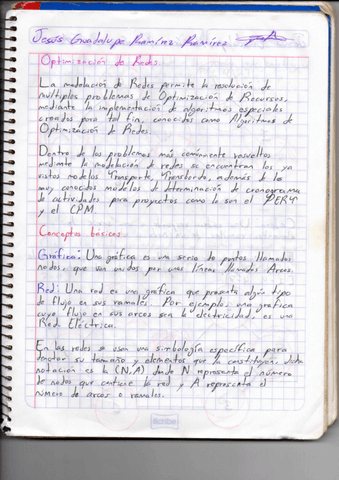 Jesús Guadalupe Ramírez Ramírez
Optimización de Redes.
La modelación de Redes permite la resolución de
múltiples problemas de Optimización de Recursos,
mediante la implementación de algoritmos especiales
creados para tal fin, conocidos como Algoritmos de
Optimización de Redes.
Dentro de los problemas más comúnmente resueltos
mediante la modelación de redes se encuentran los ya
vistos modelos Transporte, Transbordo, además de los
muy conocidos modelos de determinación de cronograma
de actividades para proyectos como lo son el PERT
y el CPM.
Conceptos básicos.
Gráfica: Una gráfica es una serie de puntos llamados
nodos, que van unidos por unas líneas llamadas Arcos.
Red: Una red es una gráfica que presenta algún tipo
de flujo en sus ramales. Por ejemplo, una gráfica
cuyo flujo en sus arcos sea la electricidad, es una
Red Eléctrica.
En las redes se usan una simbología específica para
denotar su tamaño y elementos que la constituyen, dicha
notación es la (N,A) donde N representa el número
de nodos que contiene la red y A representa el
número de arcos o ramales.